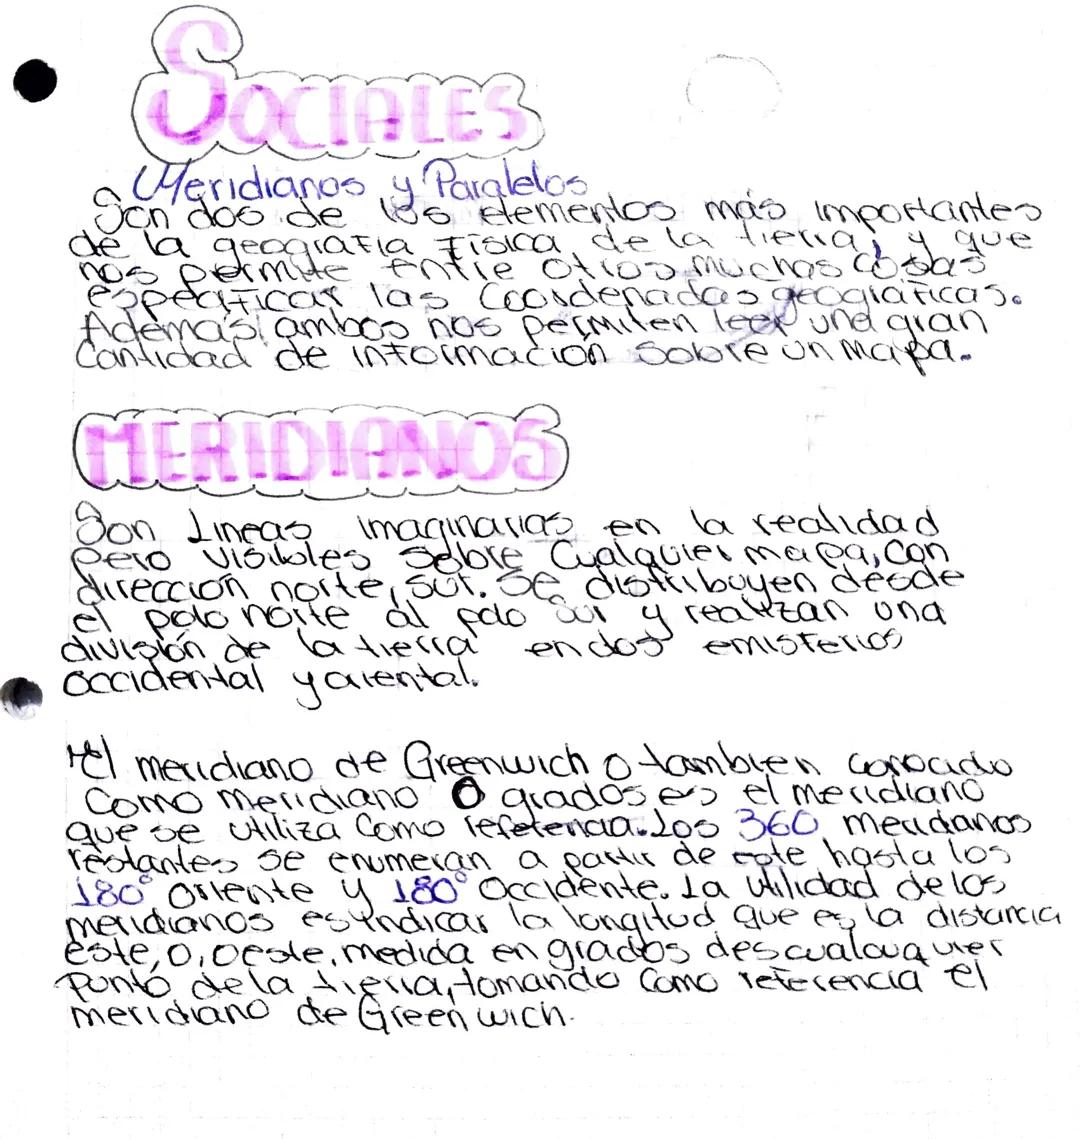 SOCIALES
Meridianos y Paralelos
Son dos de los elementos más importantes
de la geografía física de la tierra, y que
nos permite entre otros muchos cosas
especificar las Coordenadas geográficas.
Además, ambos nos permiten leer una gran
Cantidad de información sobre un mapa.
MERIDIANOS
Son Lineas imaginarias en la realidad
pero visibles sobre Cualquier mapa, con
dirección norte, sur. Se distribuyen desde
el polo norte al polo sur y realizan una
división de la tierra en dos emisferios
occidental y oriental.
El meridiano de Greenwich o tambien conocido
como meridiano 0 grados es el meridiano
que se utiliza como referencia. Los 360 meridianos
restantes se enumeran a partir de este hasta los
180° oriente y 180° Occidente. La utilidad de los
meridianos es indicar la longitud que es la distancia
este, o, oeste, medida en grados des cualquier
Punto de la tierra, tomando como referencia el
meridiano de Greenwich.